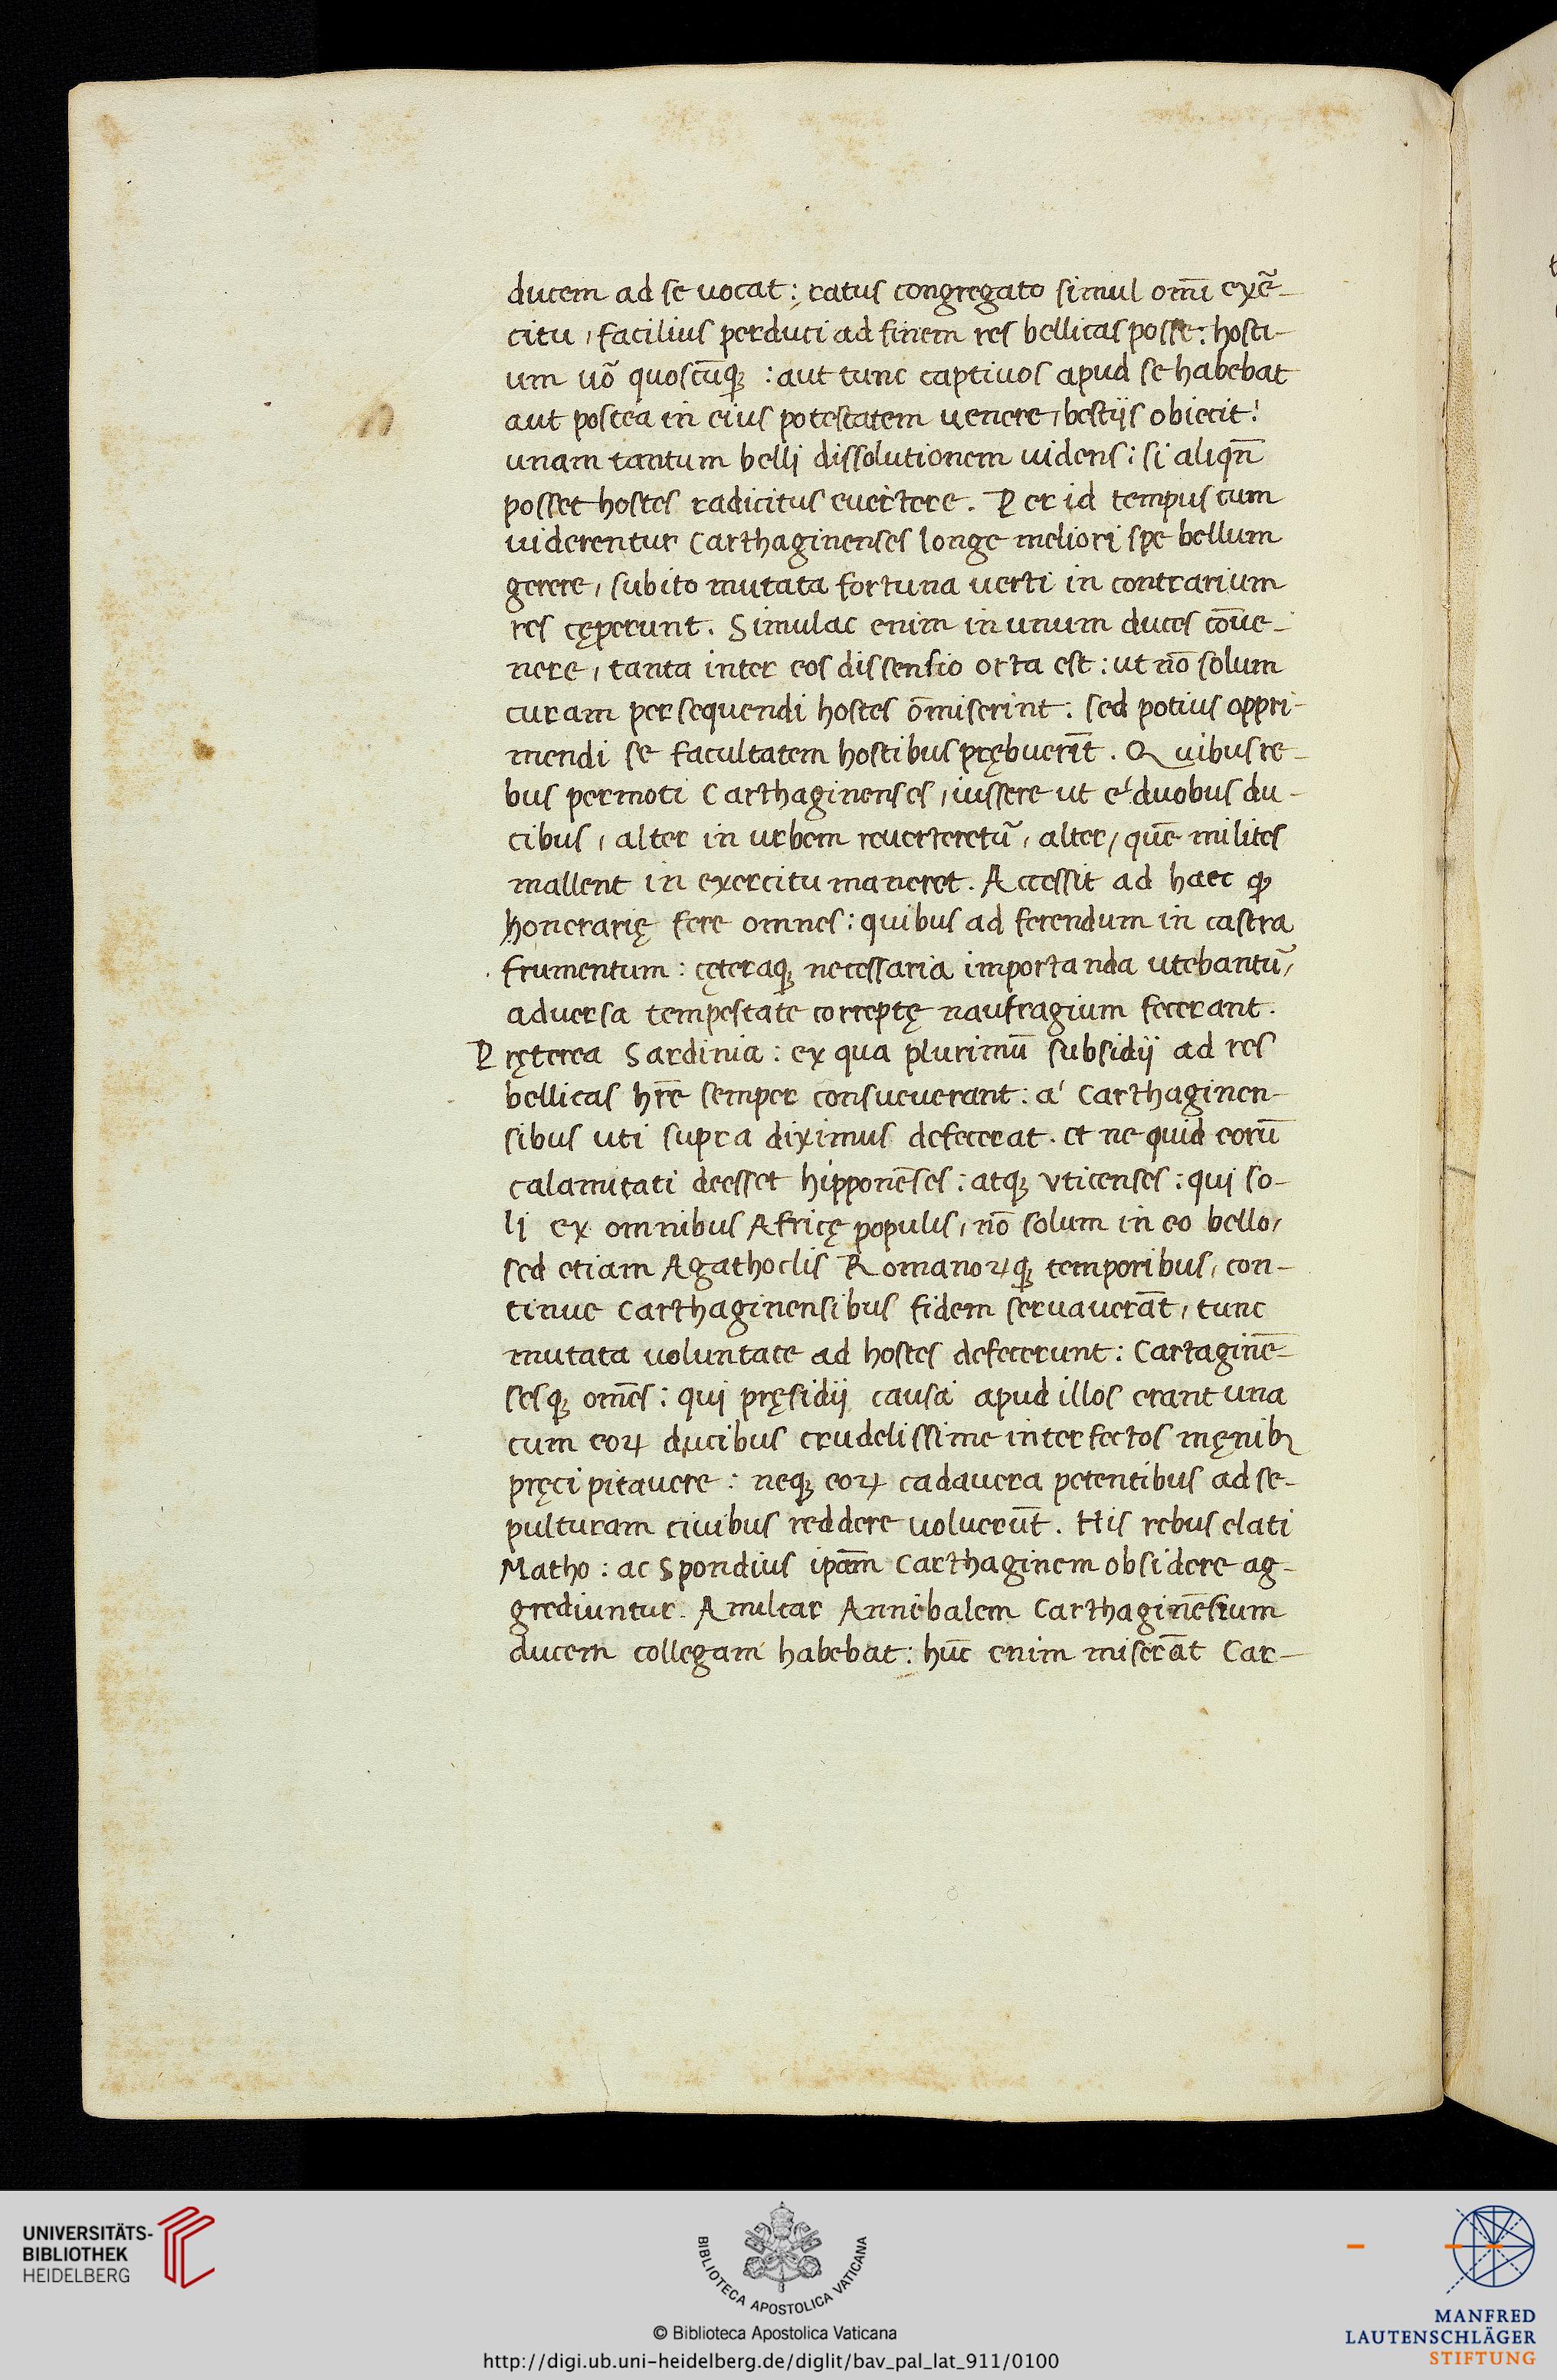 ducem ad se uocat: ratus congregato simul om̄i exẽ-
citu, facilius perduci ad finem res bellicas posse: hosti-
um uõ quoscūq; : aut tunc captiuos apud se habebat
aut postea in eius potestatem uenere, bestijs obiecit:
unam tantum belli dissolutionem uidens: si aliqñ
posset hostes radicitus euertere. Per id tempus cum
uiderentur Carthaginenses longe meliori spe bellum
gerere, subito mutata fortuna uerti in contrarium
res cęperunt. Simulac enim in unum duces cōue-
nere, tanta inter eos dissensio orta est: ut nō solum
curam persequendi hostes ōmiserint: sed potius oppri-
mendi se facultatem hostibus prębuerīt. Quibus re-
bus permoti Carthaginenses, iussere ut é duobus du-
cibus, alter in urbem reuerteretũ, alter, quē milites
mallent in exercitu maneret. Accessit ad haec ꝙ
honerarię fere omnes: quibus ad ferendum in castra
frumentum: cęteraq; necessaria importanda utebantũ,
aduersa tempestate correptę naufragium fecerant.
Pręterea Sardinia: ex qua plurimū subsidij ad res
bellicas hr̄e semper consueuerant: á Carthaginen-
sibus uti supra diximus defecerat. et ne quid eorū
calamitati deesset hipponēses: atq; vticenses: qui so-
li ex omnibus Africę populis, nō solum in eo bello,
sed etiam Agathoclis Romanoꝝq; temporibus, con-
tinue Carthaginensibus fidem seruauerāt, tunc
mutata uoluntate ad hostes defecerunt: Cartaginē-
sesq; om̄es: qui pręsidij causá apud illos erant una
cum eoꝝ ducibus crudelissime interfectos męnibꝫ
pręcipitauere: neq; eoꝝ cadauera petentibus ad se-
pulturam ciuibus reddere uoluerūt. His rebus elati
Matho: ac Spondius ip̄am Carthaginem obsidere ag-
grediuntur. Amilcar Annibalem Carthaginēsium
ducem collegam habebat: hūc enim miserāt Car-
UNIVERSITÄTS-
BIBLIOTHEK
HEIDELBERG
BIBLIOTECA APOSTOLICA VATICANA
© Biblioteca Apostolica Vaticana
http://digi.ub.uni-heidelberg.de/diglit/bav_pal_lat_911/0100
MANFRED
LAUTENSCHLÄGER
STIFTUNG